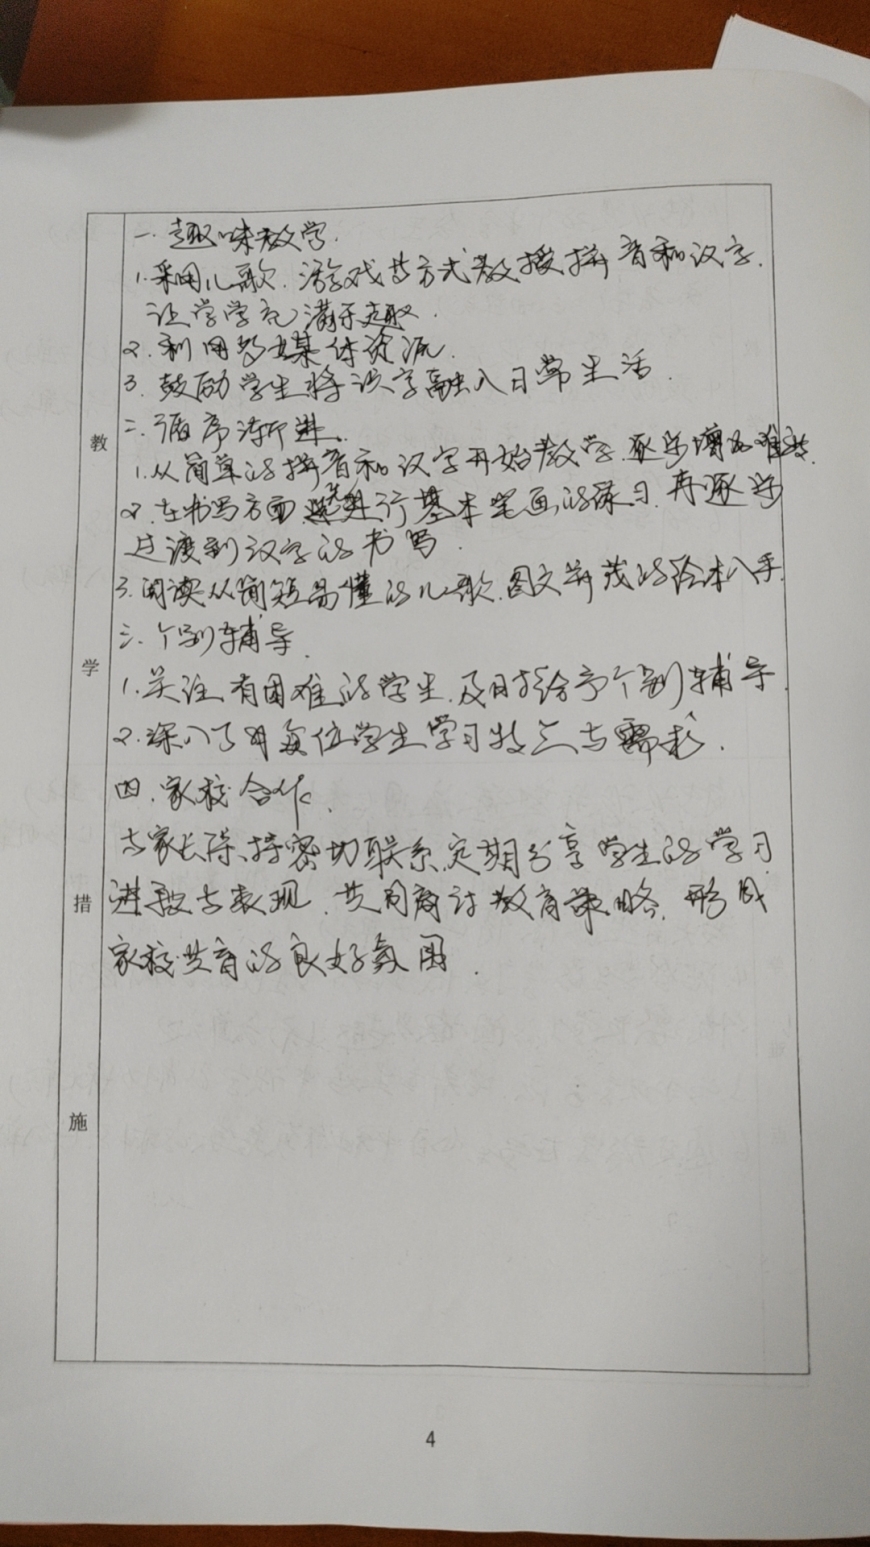 教学措施
一. 趣味教学.
1. 采用儿歌. 游戏等方式教授拼音和汉字.
让学学充满乐趣.
2. 利用多媒体资源.
3. 鼓励学生将识字融入日常生活.
二. 循序渐进.
1. 从简单的拼音和汉字开始教学. 逐步增加难度.
2. 在书写方面先进行基本笔画的练习. 再逐步
过渡到汉字的书写.
3. 阅读从简短易懂的儿歌. 图文并茂的绘本入手.
三. 个别辅导.
1. 关注有困难的学生. 及时给予个别辅导.
2. 深入了解每位学生学习特点与需求.
四. 家校合作.
与家长保持密切联系. 定期分享学生的学习
进步与表现. 共同商讨教育策略. 形成
家校共育的良好氛围.
4